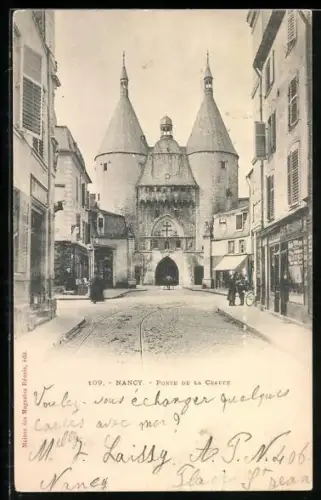 109. - NANCY. - PORTE DE LA CRAFFE
Maison des Magasins Réunis, édit.
Voulez-vous échanger quelques
cartes avec moi ?
Mlle J. Laissy A. P. N. 406
Nancy Place St Jean